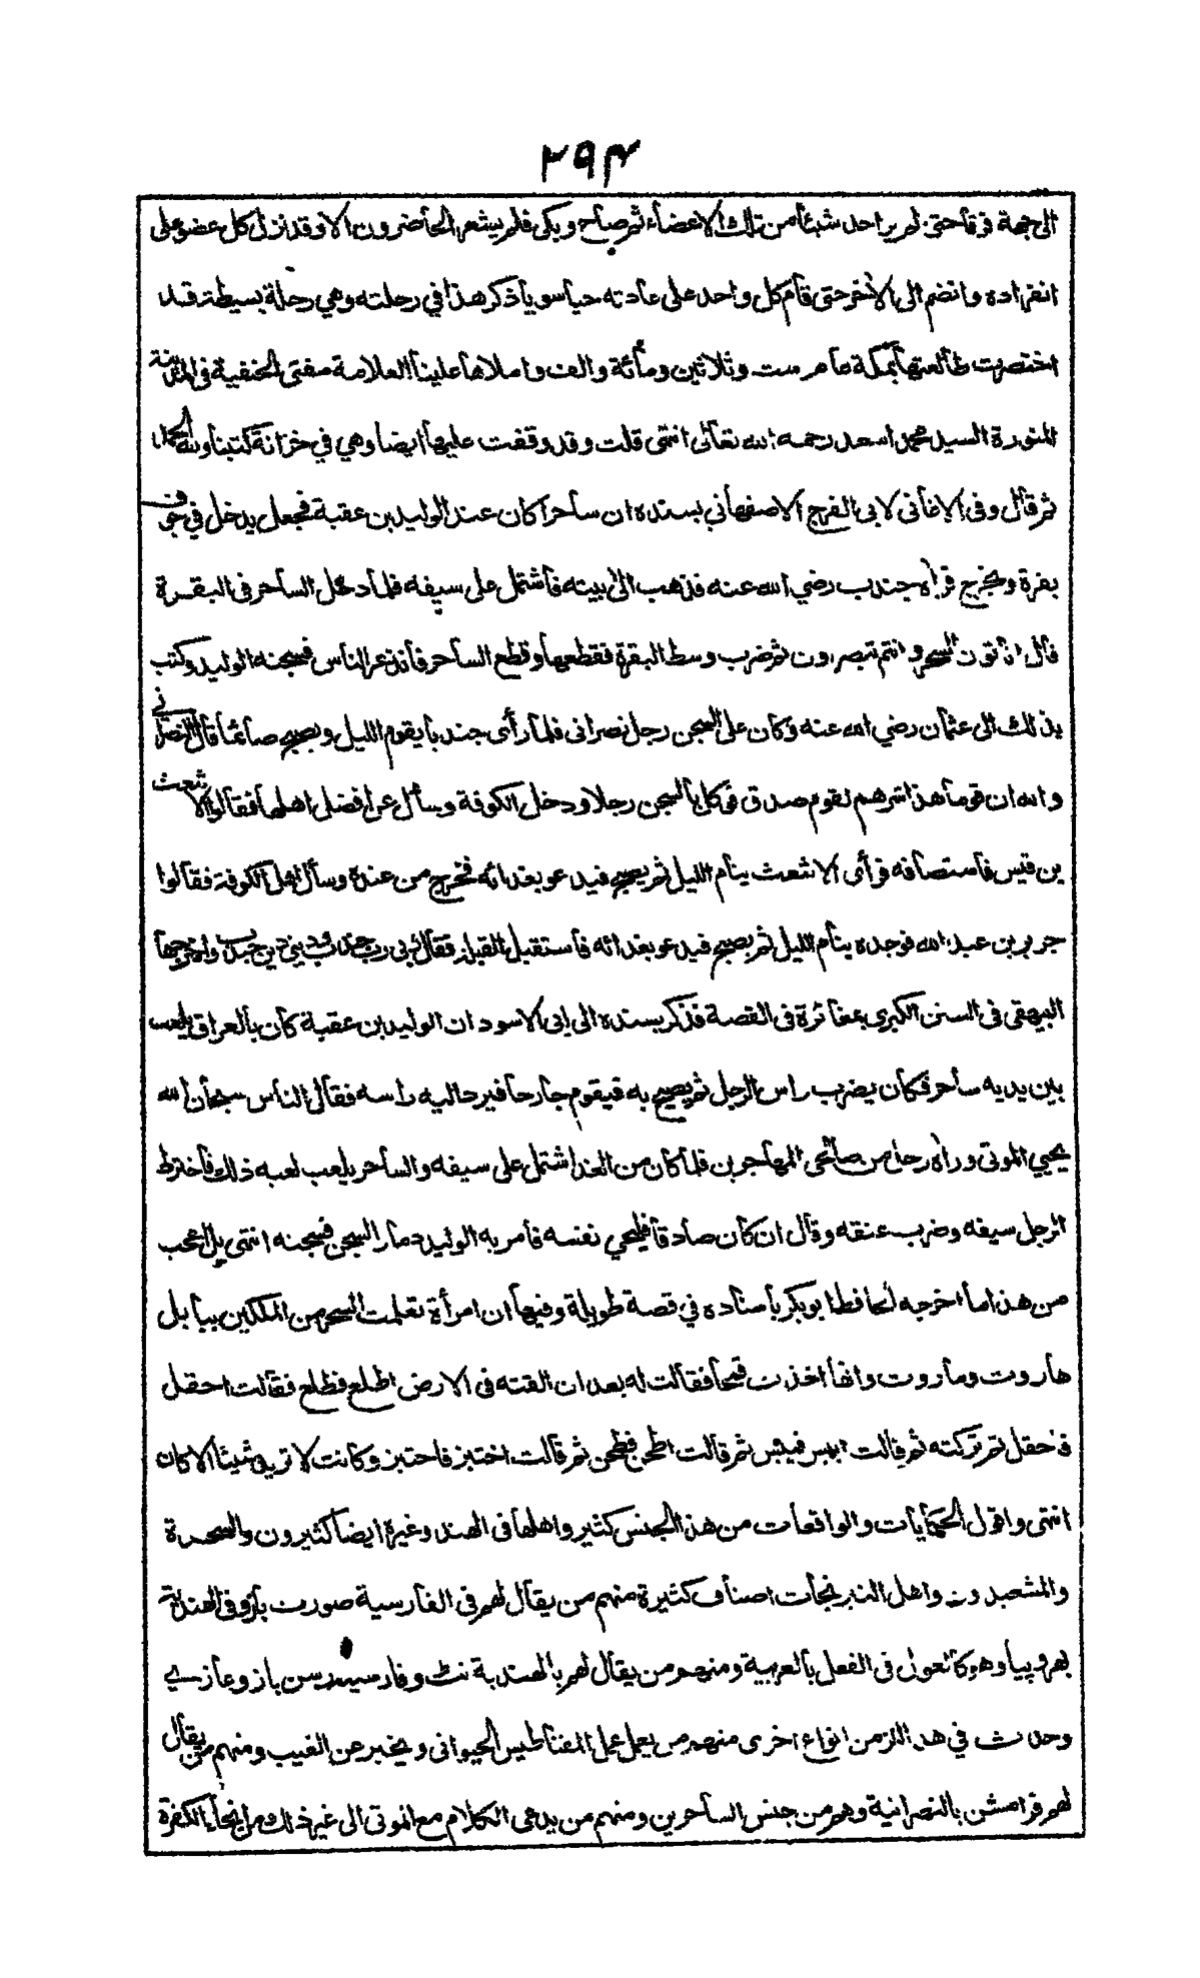 ٢٩٤
الى جهة فوقا حتى لم ير احد شيئا من تلك الاعضاء ثم صاح وبكى فلم يشعر الحاضرون الا وقد نزل كل عضو على
انفراده وانضم الى الآخر حتى قام كل واحد على عادته حيا سويا ذكر هذا في رحلته وهي رحلة بسيطة قد
اختصرت طالعتها بمكة عام ست وثلاثين ومائة والف واملاها علينا العلامة مفتى الحنفية فى المدينة
المنورة السيد محمد اسعد رحمه الله تعالى انتهى قلت وقد وقفت عليها ايضا وهي في خزانة كتبنا ولله الحمد
ثم قال وفى الاغانى لابى الفرج الاصفهاني بسنده ان ساحرا كان عند الوليد بن عقبة فجعل يدخل في جوف
بقرة ويخرج فرآه جندب رضي الله عنه فذهب الى بيته فاشتمل على سيفه فلما دخل الساحر فى البقرة
قال اتأتون السحر وانتم تبصرون ثم ضرب وسط البقرة فقطعها وقطع الساحر فانذعر الناس فسجنه الوليد وكتب
بذلك الى عثمان رضي الله عنه وكان على السجن رجل نصرانى فلما رأى جندبا يقوم الليل ويصبح صائما قال النصراني
والله ان قوما هذا اشرهم لقوم صدق فوكل بالسجن رجلا ودخل الكوفة وسأل عن افضل اهلها فقالوا الاشعث
بن قيس فاستضافه فرأى الاشعث ينام الليل ثم يصبح فيدعو بغدائه فخرج من عنده وسأل اهل الكوفة فقالوا
جرير بن عبد الله فوجده ينام الليل ثم يصبح فيدعو بغدائه فاستقبل القبلة فقال ربى رب جندب وديني دين جندب واخرجها
البيهقى فى السنن الكبرى بمغائرة فى القصة فذكر بسنده الى ابى الاسود ان الوليد بن عقبة كان بالعراق يلعب
بين يديه ساحر فكان يضرب راس الرجل ثم يصيح به فيقوم خارجا فيرد اليه راسه فقال الناس سبحان الله
يحيي الموتى ورأه رجل من صالحى المهاجرين فلما كان من الغد اشتمل على سيفه والساحر يلعب لعبه ذلك فاخترط
الرجل سيفه وضرب عنقه وقال ان كان صادقا فليحي نفسه فأمر به الوليد دينار السجن فسجنه انتهى بل اعجب
من هذا ما اخرجه الحافظ ابو بكر باسناده في قصة طويلة وفيها ان امرأة تعلمت السحر من الملكين ببابل
هاروت وماروت وانها اخذت قمحا فقالت له بعد ان القته فى الارض اطلع فطلع فقالت احقل
فاحقل ثم تركته ثم قالت ايبس فيبس ثم قالت اطحن فطحن ثم قالت اختبز فاختبز وكانت لا تريد شيئا الا كان
انتهى واقول الحكايات والواقعات من هذا الجنس كثير واهلها فى الهند وغيره ايضا كثيرون والسحرة
والمشعبدون واهل النيرنجات اصناف كثيرة منهم من يقال لهم فى الفارسية صورت باز وفى الهندية
بهروپيا وهو كالغول فى الفعل بالعربية ومنهم من يقال لهم بالهندية نٹ وفارسيته رسن باز وغازي
وحدث في هذا الزمن انواع اخرى منهم من يعمل عمل المغناطيس الحيوانى ويخبر عن الغيب ومنهم من يقال
لهم فرامشن بالنصرانية وهم من جنس الساحرين ومنهم من يدعى الكلام مع الموتى الى غير ذلك من انحاء الكفرة